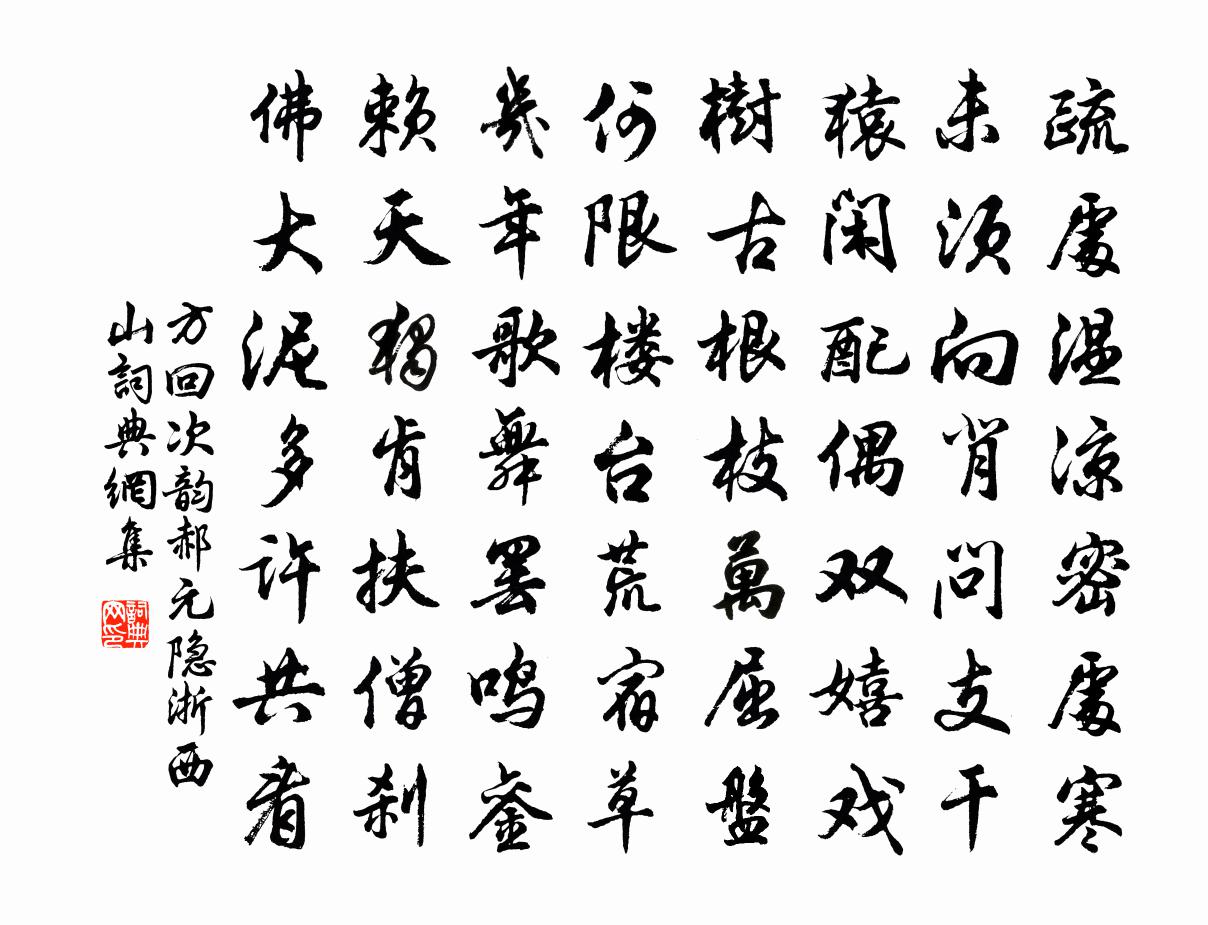 疏處温凉密處寒
未须向肖問支干
猿閑配偶双嬉戏
樹古根枝萬屈盤
何限楼台荒宿草
幾年歌舞罢鸣銮
赖天獨肯扶僧刹
佛大泥多許共看
方回次韵郝元隐浙西
山詞典網集
詞典
网印